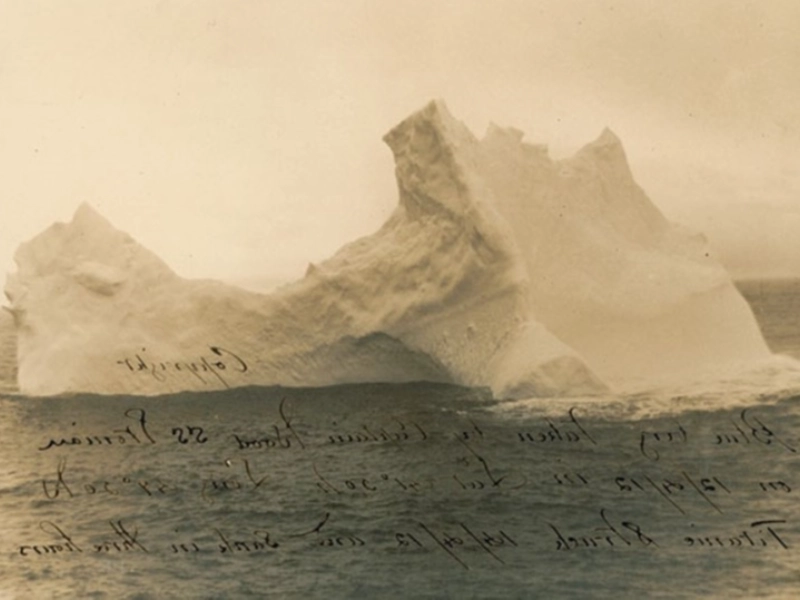 Copyright
Blue berg taken by Captain Wood SS Etonian
on 12/4/12 in Lat 41°50 Long 49°50
Titanic Struck 14/4/12 and Sank in three hours